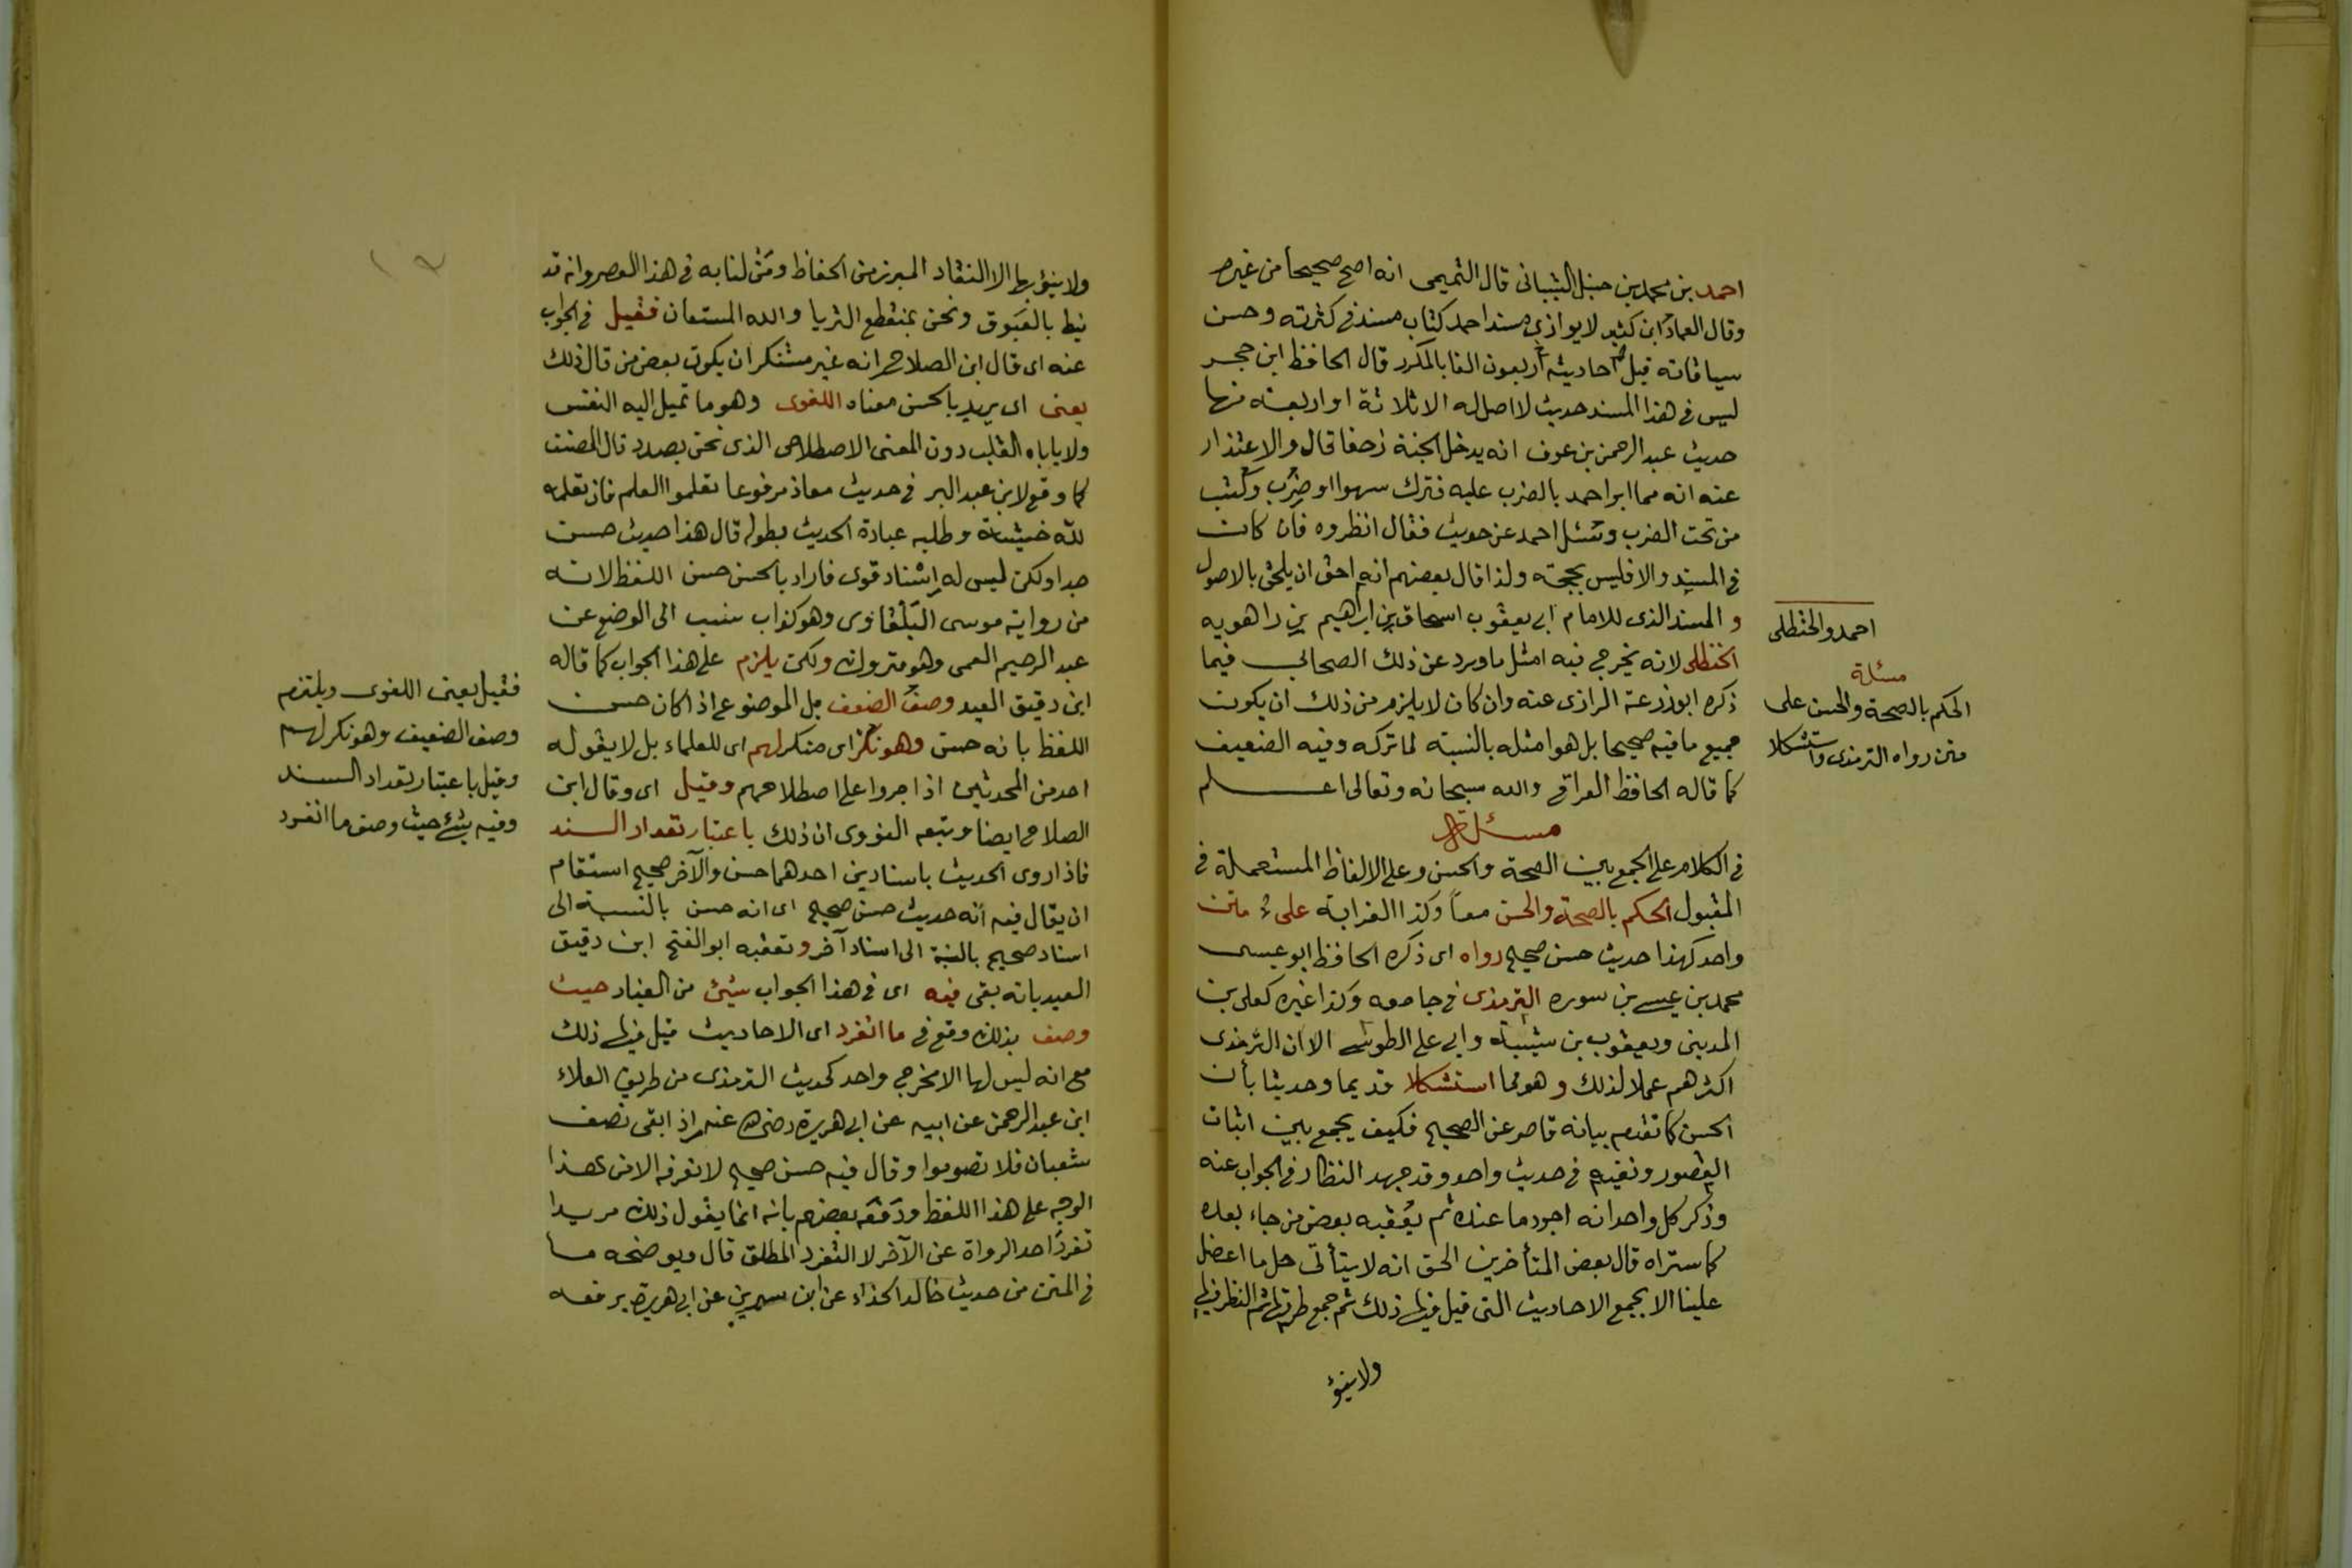 احمد بن محمد بن حنبل الشيبانى قال التميمى انه اصح صحيحا من غيره
وقال العماد ابن كثير لا يوازى مسند احمد كتاب مسند فى كثرته وحسن
سياقاته قيل احاديثه اربعون الفا بالمكرر قال الحافظ ابن حجر
ليس فى هذا المسند حديث لا اصل له الا ثلاثة او اربعة منها
حديث عبد الرحمن بن عوف انه يدخل الجنة زحفا قال والاعتذار
عنه انه مما امر احمد بالضرب عليه فترك سهوا او ضرب وكتب
من تحت الضرب وسئل احمد عن حديث فقال انظروه فان كان
فى المسند والا فليس بحجة ولذا قال بعضهم انه احق ان يلحق بالاصول
و المسند الذى للامام ابى يعقوب اسحاق بن ابراهيم بن راهويه
الحنظلى لانه يخرج فيه امثل ما ورد عن ذلك الصحابى فيما
ذكره ابو زرعة الرازى عنه وان كان لا يلزم من ذلك ان يكون
جميع ما فيه صحيحا بل هو امثله بالنسبة لما تركه وفيه الضعيف
كما قاله الحافظ العراقى والله سبحانه وتعالى اعلم
مسئلة
فى الكلام على الجمع بين الصحة والحسن وعلى الالفاظ المستعملة فى
المقبول الحكم بالصحة والحسن معاً وكذا الغرابة على متن
واحد كهذا حديث حسن صحيح رواه اى ذكره الحافظ ابو عيسى
محمد بن عيسى بن سوره الترمذى فى جامعه وكذا غيره كعلى بن
المدينى ويعقوب بن شيبة وابى على الطوسى الا ان الترمذى
اكثرهم عملا لذلك وهو مما استشكلا قديما وحديثا بأن
الحسن كما تقدم بيانه قاصر عن الصحيح فكيف يجمع بين اثبات
القصور ونفيه فى حديث واحد وقد جهد النظار فى الجواب عنه
وذكر كل واحد انه اجود ما عنده ثم يعقبه بعض من جاء بعده
كما ستراه قال بعض المتأخرين الحق انه لا يتأتى حل ما اعضل
علينا الا بجمع الاحاديث التى قيل فيها ذلك ثم جمع طرقها ثم النظر فيها
ولا ينبؤ
احمد والحنظلى
مسئلة
الحكم بالصحة والحسن على
متن رواه الترمذى واستشكلا
ولا ينبؤ بها الا النقاد المبرز من الحفاظ ومن لنا به فى هذا العصر وانه قد
نيط بالعيوق ونحن بمنقطع الثريا والله المستعان فقيل فى الجواب
عنه اى قال ابن الصلاح انه غير مستنكر ان يكون بعض من قال ذلك
يعنى اى يريد بالحسن معناه اللغوى وهو ما تميل اليه النفس
ولا ياباه القلب دون المعنى الاصطلاحى الذى نحن بصدده قال المصنف
كما وقع لابن عبد البر فى حديث معاذ مرفوعا تعلموا العلم فان تعلمه
لله خشية وطلبه عبادة الحديث بطوله قال هذا حديث حسن
جدا ولكن ليس له إسناد قوى فاراد بالحسن حسن اللفظ لانه
من رواية موسى البلقاوى وهو كذاب نسب الى الوضع عن
عبد الرحيم العمى وهو متروك ولكن يلزم على هذا الجواب كما قاله
ابن دقيق العيد وصف الضعف بل الموضوع اذا كان حسن
اللفظ بانه حسن وهو نكر اى منكر لهم اى للعلماء بل لا يقوله
احد من المحدثين اذا جروا على اصطلاحهم وقيل اى وقال ابن
الصلاح ايضا وتبعه النووى ان ذلك باعتبار تعداد السند
فاذا روى الحديث باسنادين احدهما حسن والآخر صحيح استقام
ان يقال فيه انه حديث حسن صحيح اى انه حسن بالنسبة الى
اسناد صحيح بالنسبة الى اسناد آخر وتعقبه ابو الفتح ابن دقيق
العيد بانه بقى فيه اى فى هذا الجواب شئ من العناد حيث
وصف بذلك وقع فى ما انفرد اى الاحاديث قيل فيها ذلك
مع انه ليس لها الا مخرج واحد كحديث الترمذى من طريق العلاء
ابن عبد الرحمن عن ابيه عن ابى هريرة رضى الله عنه اذا بقى نصف
شعبان فلا تصوموا وقال فيه حسن صحيح لا نعرفه الا من هذا
الوجه على هذا اللفظ ودفعه بعضهم بانه انما يقول ذلك مريدا
تفرد احد الرواة عن الآخر لا التفرد المطلق قال ويوضحه ما
فى المتن من حديث خالد الحذاء عن ابن سيرين عن ابى هريرة يرفعه
فقيل يعنى اللغوى ويلتزم
وصف الضعيف وهو نكر لهم
وقيل باعتبار تعداد السند
وفيه شئ حيث وصف ما انفرد